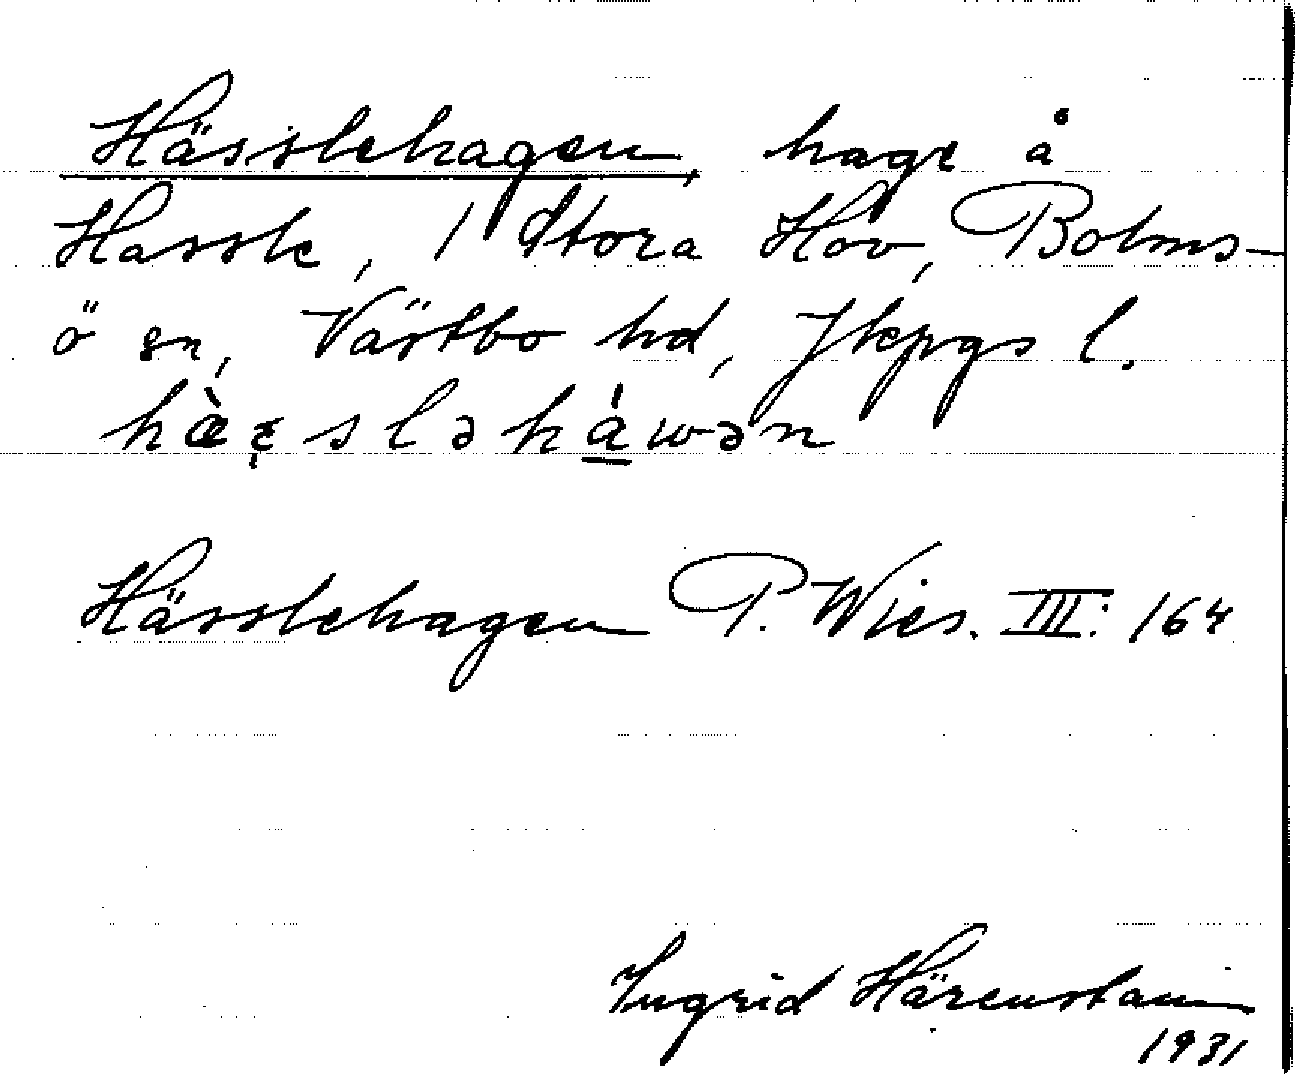 Hässlehagen, hage å
Hassle, 1 Stora Hov, Bolms-
ö sn, Västbo hd, Jkpgs l.
hæ̀ꞓsləháwən
Hässlehagen P. Wies. III: 164
Ingrid Härenstam
1931